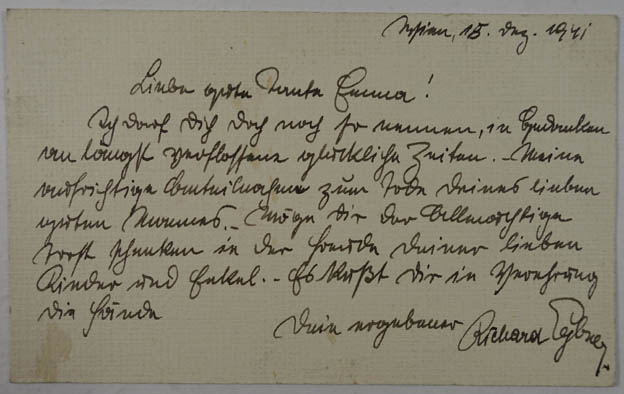 Wien, 15. Dez. 1941
Liebe gute Tante Emma!
Ich darf Dich doch noch so nennen, in Gedanken
an längst verflossene glückliche Zeiten. – Meine
aufrichtige Anteilnahme zum Tode Deines lieben
guten Mannes. – Möge Dir der Allmächtige
Trost schenken in der Freude Deiner lieben
Kinder und Enkel. – Es küßt Dir in Verehrung
die Hände
Dein ergebener Richard Eybner